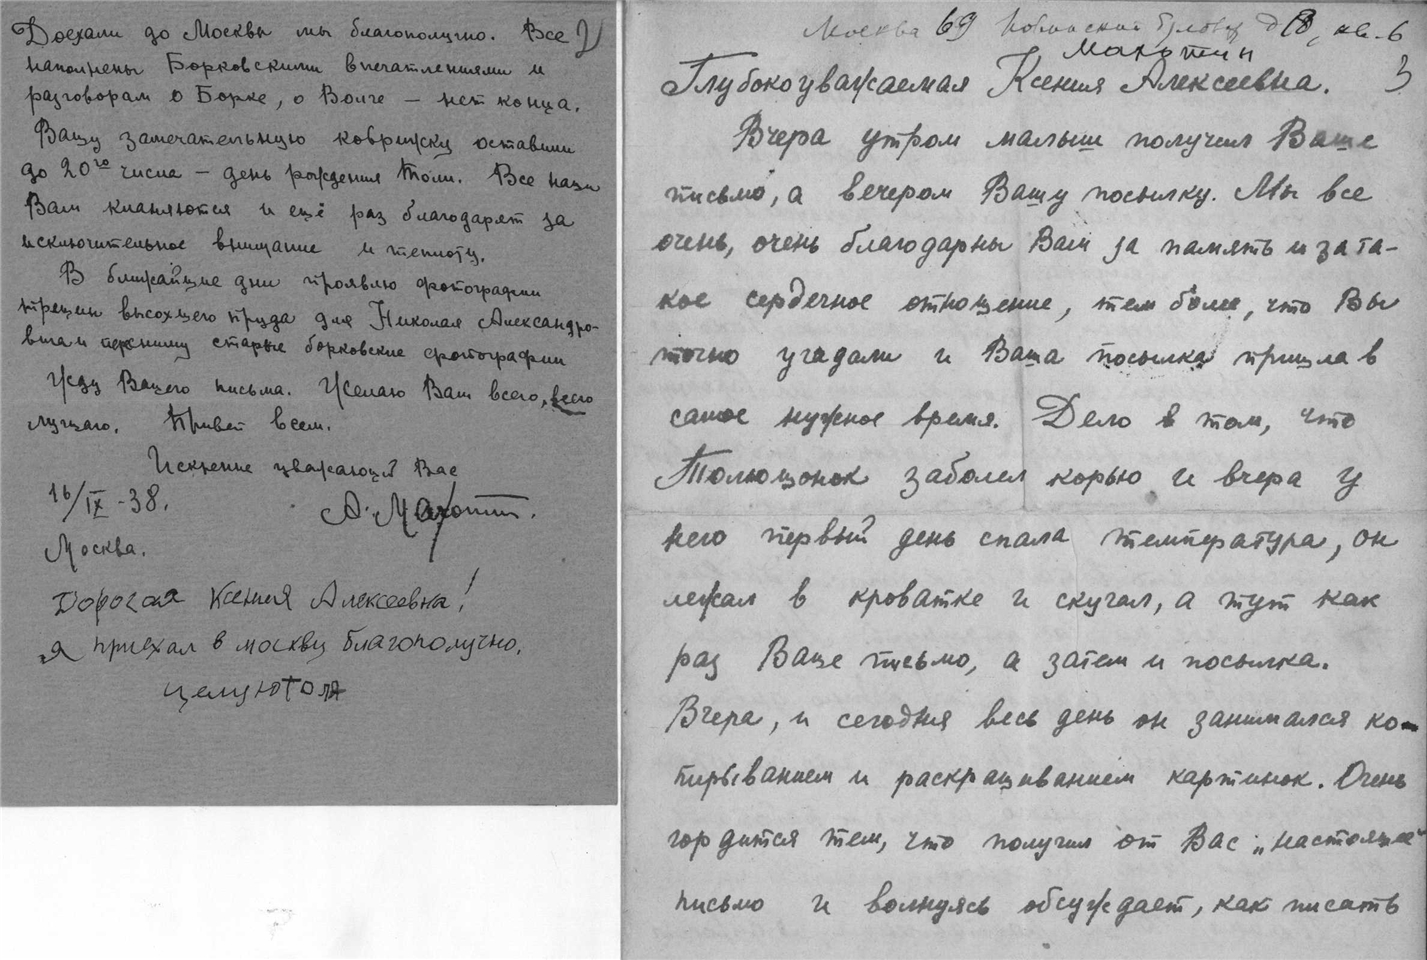 Доехали до Москвы мы благополучно. Все 2
наполнены Борковскими впечатлениями и
разговорам о Борке, о Волге — нет конца.
Вашу замечательную коврижку оставили
до 20го числа — день рождения Толи. Все наши
Вам кланяются и ещё раз благодарят за
исключительное внимание и теплоту.
В ближайшие дни проявлю фотографии
трещин высохшего пруда для Николая Александро-
вича и пересниму старые борковские фотографии
Жду Вашего письма. Желаю Вам всего, всего
лучшаго. Привет всем.
Искренне уважающий Вас
16/IX -38. А. Махотин.
Москва.
Дорогая Ксения Алексеевна!
я приехал в москву благополучно.
целую Толя
Москва 69 д 18, кв. 6
Махотин
Глубокоуважаемая Ксения Алексеевна. 3
Вчера утром малыш получил Ваше
письмо, а вечером Вашу посылку. Мы все
очень, очень благодарны Вам за память и за та-
кое сердечное отношение, тем более, что Вы
точно угадали и Ваша посылка пришла в
самое нужное время. Дело в том, что
Толюшонок заболел корью и вчера у
него первый день спала температура, он
лежал в кроватке и скучал, а тут как
раз Ваше письмо, а затем и посылка.
Вчера, и сегодня весь день он занимался ко-
пированием и раскрашиванием картинок. Очень
гордится тем, что получил от Вас „настоящее"
письмо и волнуясь обсуждает, как писать